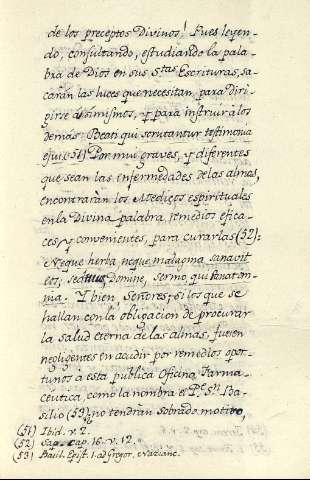 de los preceptos Divinos! Pues leyen-
do, consultando, estudiando la pala-
bra de Dios en sus Stas Escrituras, sa-
carán las luces que necesitan, para diri-
girse asimismos, y para instruir à los
demás. Beati qui scrutantur testimonia
ejus (51) Por mui graves, y diferentes
que sean las enfermedades de las almas,
encontraràn los Medicos espirituales
en la Divina palabra, remedios efica-
ces, y convenientes, para curarlas (52):
Neque herba, neque malagma sanavit
eos; sed tuus, Domine, sermo qui sanat om-
nia. Y bien, Señores, si los que se
hallan con la obligacion de procurar
la salud eterna de las almas, fueren
negligentes en acudir por remedios opor-
tunos à esta publica Oficina Farma-
ceutica, como la nombra el Pe Sn Ba-
silio (53) no tendran sobrado motivo,
(51) Ibid. v. 2.
(52) Sap. cap. 16. v. 12.
(53) Basil. Epist. 1. ad Gregor. Nazianc.